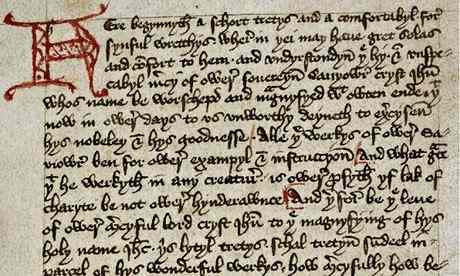 Here begynnyth a schort tretys and a comfortabyl for
synful wrecchys. wher in þei may haue gret solas
and cōfort to hem. and vndyrstondyn þe hy & vnspe
cabyl mercy of ower souereyn Sauyowr cryst Ihū
whos name be worschepd and magnyfyed wtowten ende. þt
now in ower days to vs vnworthy deyneth to exercysen
hys nobeley & hys goodnesse. Alle þe werkys of ower Sa
viowr ben for ower exampyl & instruccyon. And what grace
þt he werkyth in any creatur. is ower profyth yf lak of
charyte be not ower hynderawnce. And þerfor be þe leue
of ower mercyful lord cryst Ihū to þe magnyfying of hys
holy name Ihc. þis lytyl tretys schal tretyn sumdeel in
parcel of hys wonderful werkys. how mercyfully how be